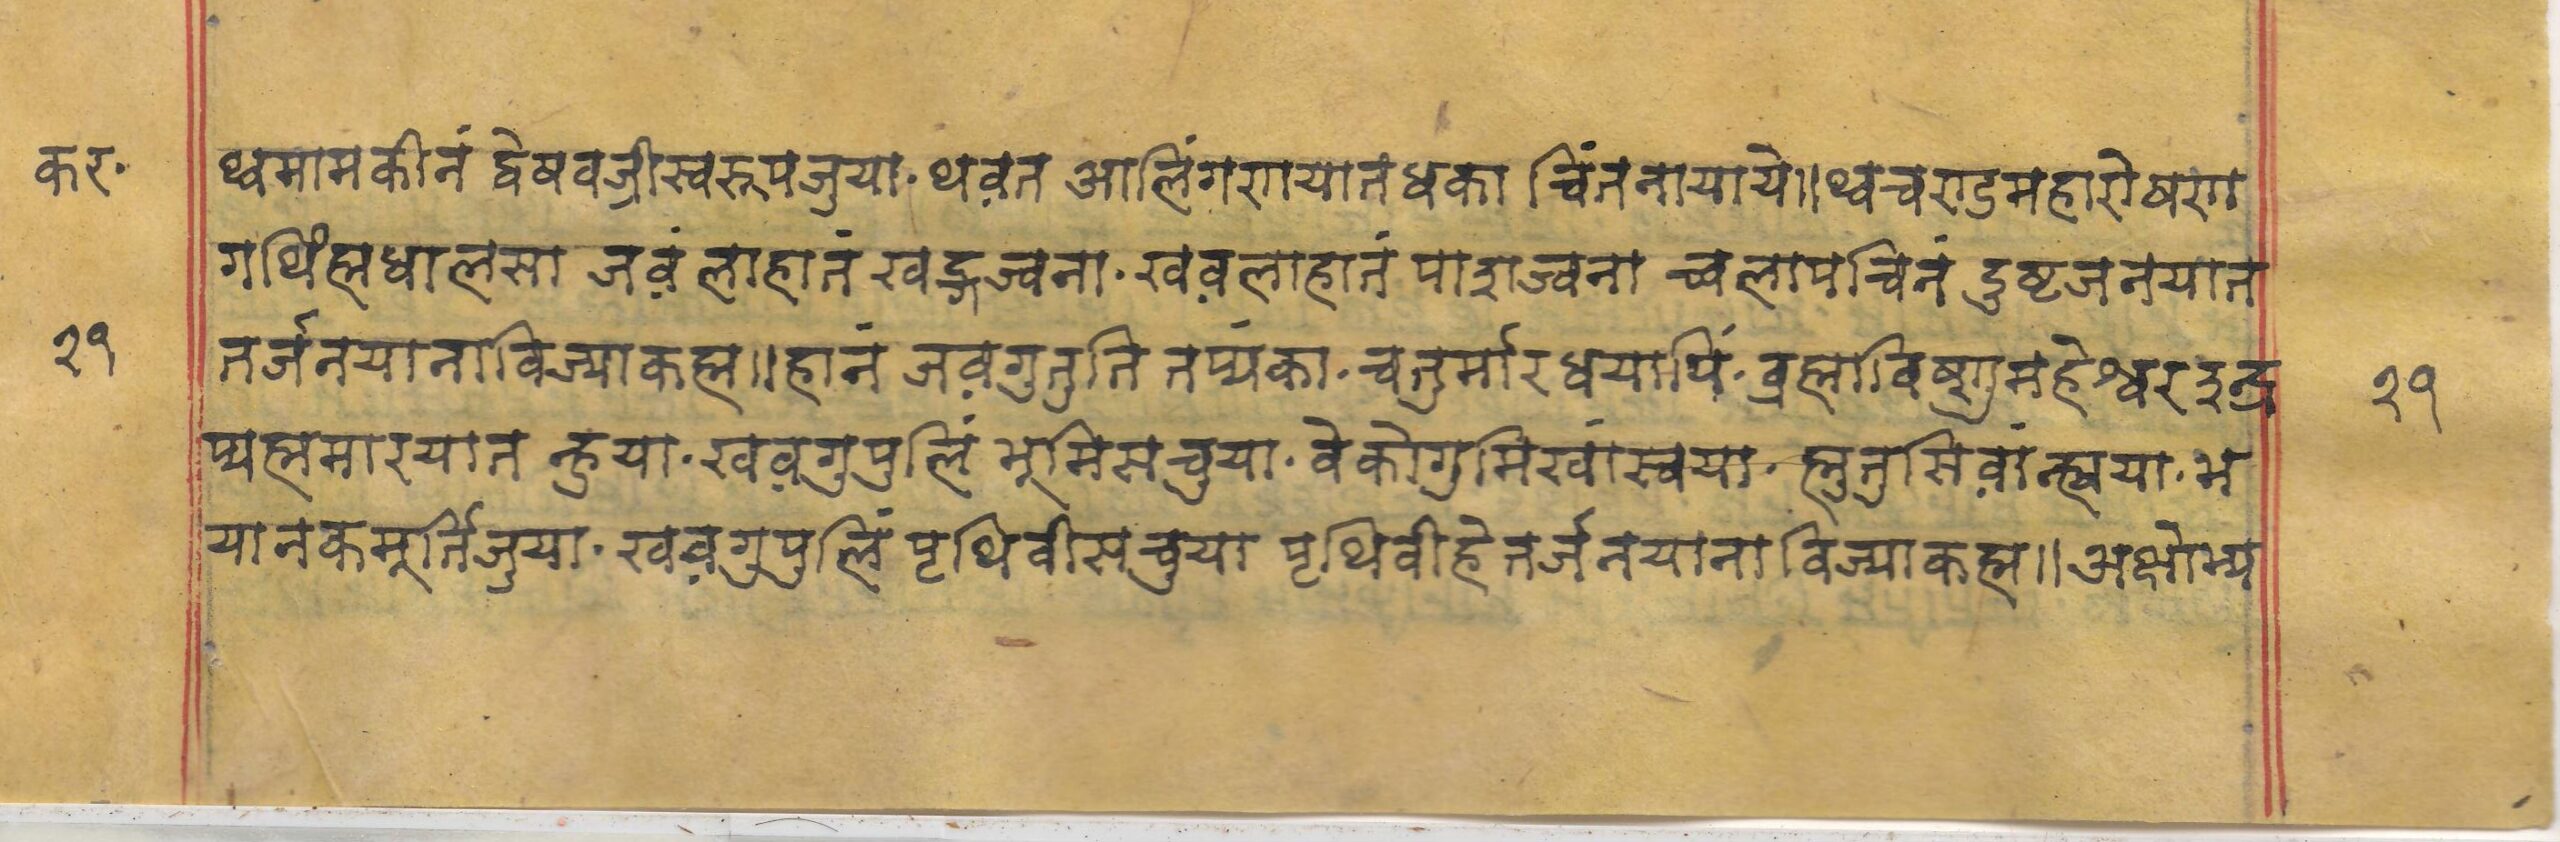 कर॰ थ्वमामकीनं द्वेषवज्रीस्वरूपजुया॰ थव़त आलिंगणयातधका चिंतनायाये॥ थ्वचण्डमहारोषण
गथिंह्मधालसा जव़ं लाहातं खड्गज्वना॰ खव़लाहातं पाशज्वना च्वलापचिनं दुष्टजनयात
२९ तर्जनयानाविज्याकह्म॥ हानं जव़गुतुति तप्यंका॰ चतुर्मारधयापिं॰ व्रह्माविष्णुमहेश्वरइन्द्र २९
प्यह्ममारयात न्हुया॰ खव़गुपुलिं भूमिसचुया॰ वेकोगुमिखांस्वया॰ ह्मुतुसिव़ांन्ह्यया॰ भ
यानकमूर्तिजुया॰ खव़गुपुलिं पृथिवीसचुया पृथिवीहेतर्जनयानाविज्याकह्म॥ अक्षोभ्य